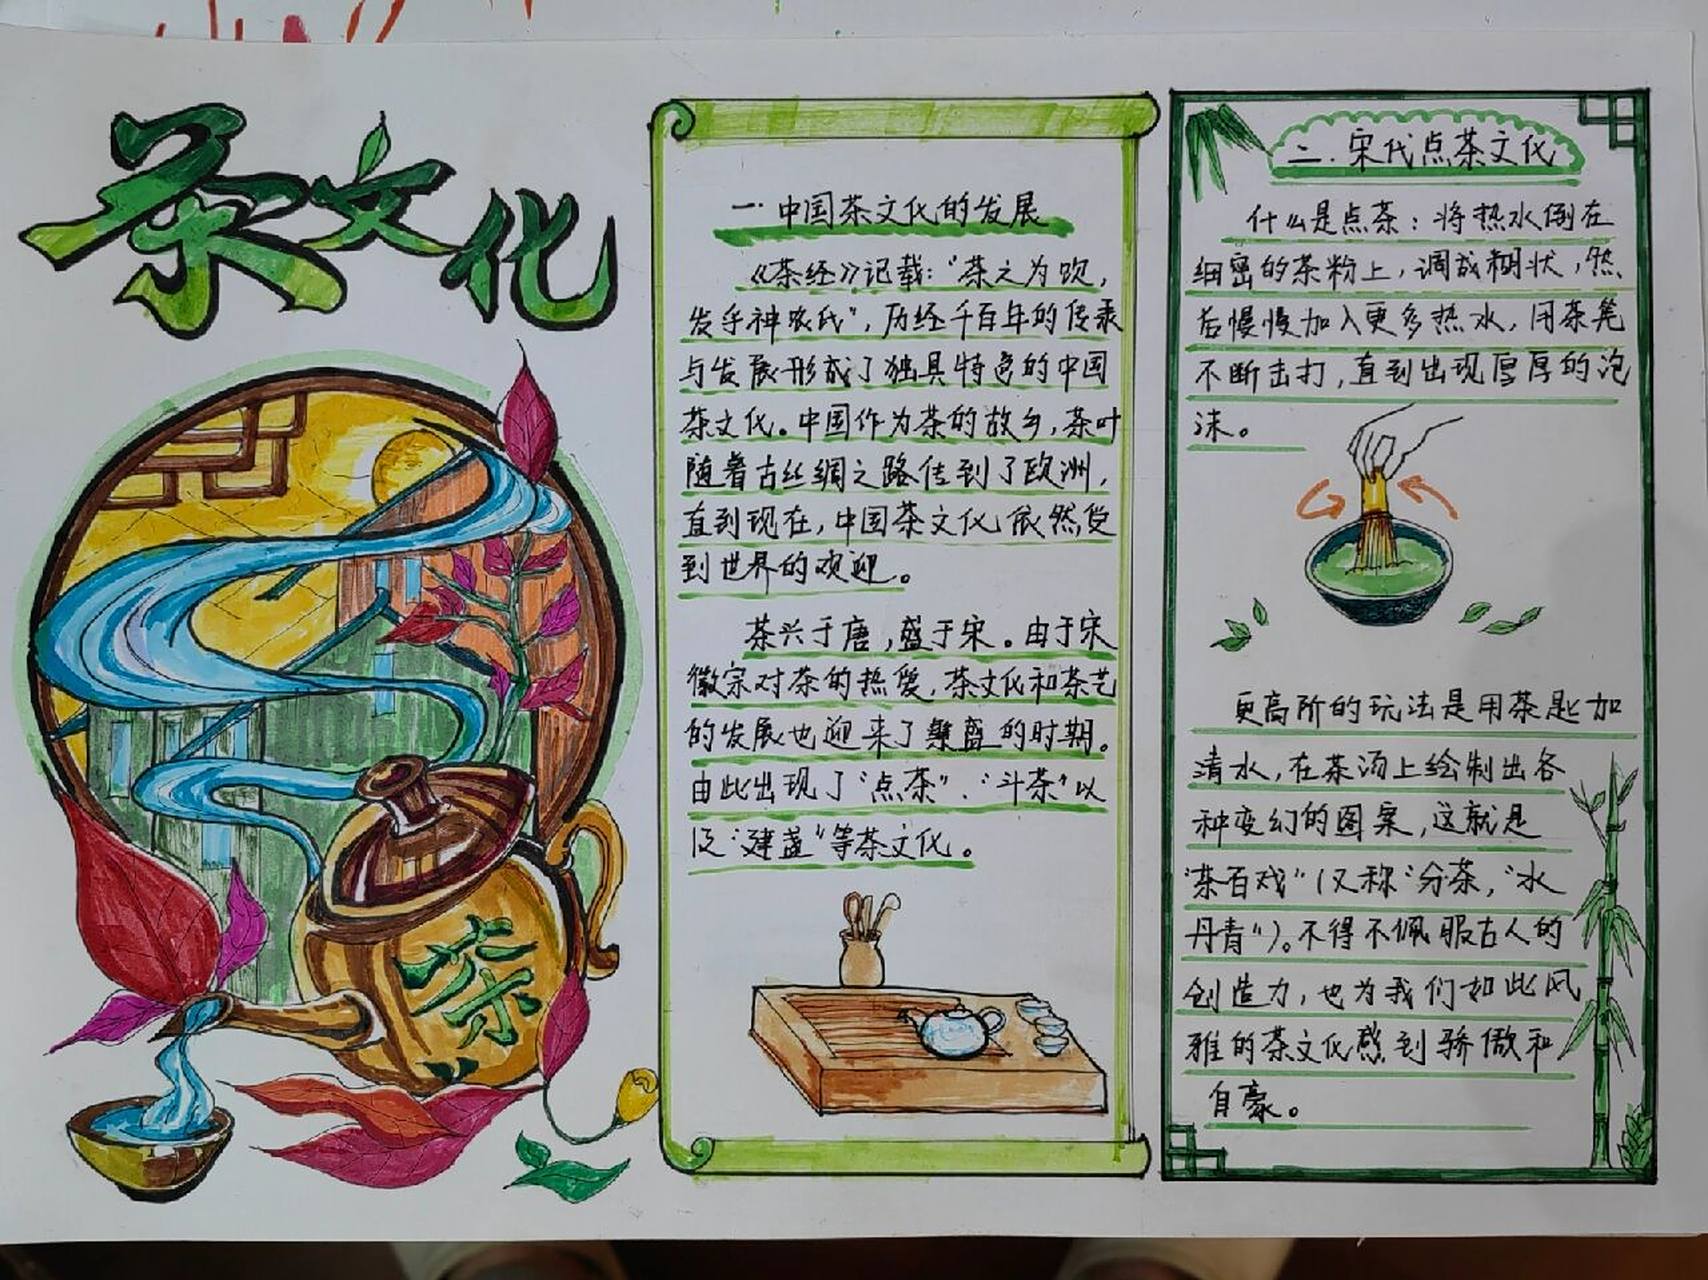 茶文化
茶
一.中国茶文化的发展
《茶经》记载:“茶之为饮,
发乎神农氏”,历经千百年的传承
与发展形成了独具特色的中国
茶文化。中国作为茶的故乡,茶叶
随着古丝绸之路传到了欧洲,
直到现在,中国茶文化依然受
到世界的欢迎。
茶兴于唐,盛于宋。由于宋
徽宗对茶的热爱,茶文化和茶艺
的发展也迎来了繁盛的时期。
由此出现了“点茶”、“斗茶”以
及“建盏”等茶文化。
二.宋代点茶文化
什么是点茶:将热水倒在
细密的茶粉上,调成糊状,然
后慢慢加入更多热水,用茶筅
不断击打,直到出现厚厚的泡
沫。
更高阶的玩法是用茶匙加
清水,在茶汤上绘制出各
种变幻的图案,这就是
“茶百戏”(又称“分茶,“水
丹青”)。不得不佩服古人的
创造力,也为我们如此风
雅的茶文化感到骄傲和
自豪。